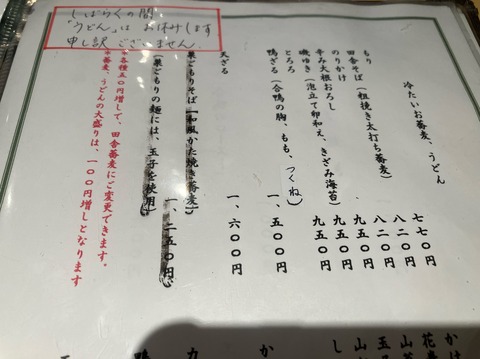 しばらくの間
"うどん"は お休みします
申し訳ございません。
冷たいお蕎麦、うどん
もり 七七〇円
田舎そば(粗挽き太打ち蕎麦) 八二〇円
のりかけ 八二〇円
辛み大根おろし 九五〇円
磯ゆき(泡立て卵和え、きざみ海苔) 九五〇円
とろろ 九五〇円
鴨ざる(合鴨の胸、もも、つくね) 一、五〇〇円
天ざる 一、六〇〇円
巣ごもりそば(和風かた焼き蕎麦) 一、二五〇円
(巣ごもりの麺には、玉子を使用)
*各種五〇円増しで、田舎蕎麦にご変更できます。
*蕎麦、うどんの大盛りは、一〇〇円増しとなります
かけ